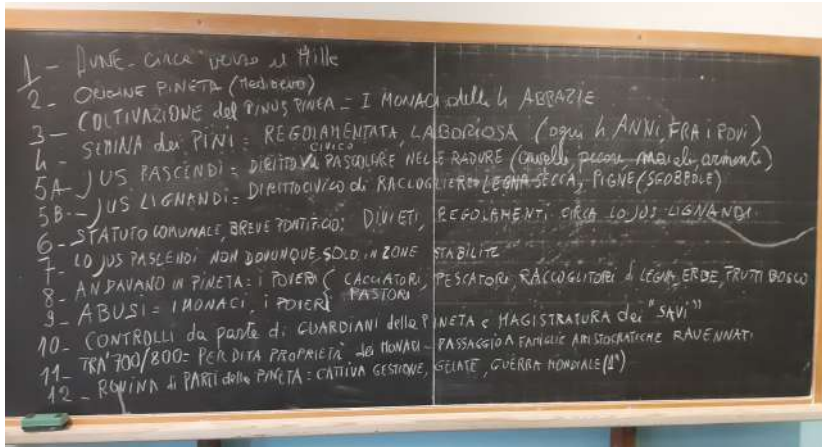 1 - DUNE - circa verso il Mille
2 - ORIGINE PINETA (Medioevo)
3 - COLTIVAZIONE del PINUS PINEA = I MONACI delle 4 ABBAZIE
4 - SEMINA dei PINI = REGOLAMENTATA, LABORIOSA (ogni 4 ANNI, FRA i ROVI)
5A - JUS PASCENDI = DIRITTO CIVICO di PASCOLARE NELLE RADURE (cavalli pecore maiali, armenti)
5B - JUS LIGNANDI = DIRITTO CIVICO di RACCOGLIERE LEGNA SECCA, PIGNE (SGOBBOLE)
6 - STATUTO COMUNALE, BREVE PONTIFICIO: DIVIETI, REGOLAMENTI CIRCA LO JUS LIGNANDI
7 - LO JUS PASCENDI NON DOVUNQUE, SOLO IN ZONE STABILITE
8 - ANDAVANO IN PINETA: i POVERI (CACCIATORI, PESCATORI, RACCOGLITORI di LEGNA, ERBE, FRUTTI BOSCO
PASTORI
9 - ABUSI = I MONACI, i POVERI
10 - CONTROLLI da parte di GUARDIANI della PINETA e MAGISTRATURA dei "SAVI"
11 - TRA '700/800 = PERDITA PROPRIETÀ dei MONACI - PASSAGGIO A FAMIGLIE ARISTOCRATICHE RAVENNATI
12 - ROVINA di PARTI della PINETA = CATTIVA GESTIONE, GELATE, GUERRA MONDIALE (1ª)